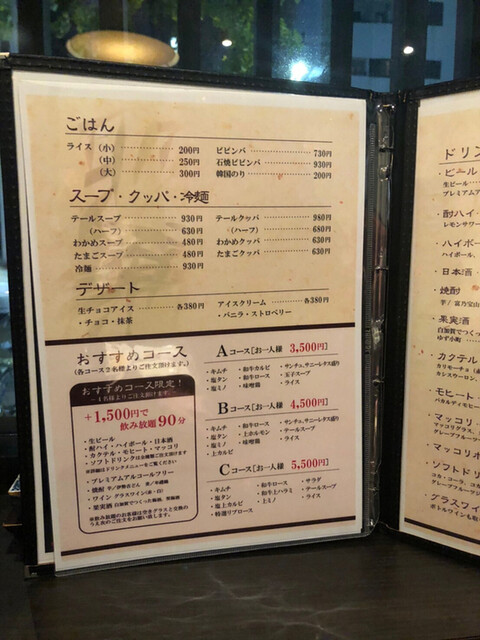 ごはん
ライス（小） 200円
（中） 250円
（大） 300円
ビビンバ 730円
石焼ビビンバ 930円
韓国のり 200円
スープ・クッパ・冷麺
テールスープ 930円
（ハーフ） 630円
わかめスープ 480円
たまごスープ 480円
冷麺 930円
テールクッパ 980円
（ハーフ） 680円
わかめクッパ 630円
たまごクッパ 630円
デザート
生チョコアイス 各380円
・チョコ・抹茶
アイスクリーム 各380円
・バニラ・ストロベリー
おすすめコース
（各コース２名様よりご注文頂けます。）
おすすめコース限定！
＋1,500円で
飲み放題90分
・生ビール
・酎ハイ・ハイボール・日本酒
・カクテル・モヒート・マッコリ
・ソフトドリンク
・プレミアムアルコールフリー
・焼酎
・ワイン グラスワイン（赤・白）
・果実酒
Aコース［お一人様 3,500円］
・キムチ
・塩タン
・塩ミノ
・和牛カルビ
・和牛ロース
・味噌鶏
・サンチュ、サニーレタス盛り
・玉子スープ
・ライス
Bコース［お一人様 4,500円］
・キムチ
・塩タン
・塩ミノ
・上カルビ
・和牛ロース
・上ホルモン
・味噌鶏
・サンチュ、サニーレタス盛り
・テールスープ
・ライス
Cコース［お一人様 5,500円］
・キムチ
・塩タン
・塩上カルビ
・特選リブロース
・和牛ロース
・和牛上ハラミ
・上ミノ
・サラダ
・テールスープ
・ライス
ドリン
・ビール
生ビール
プレミアムア
・酎ハイ・
レモンサワー
・ハイボー
ハイボール、
・日本酒・
・焼酎
・果実酒
ゆず小町
・カクテル
カシスウーロン、
・モヒート
・マッコリ
マッコリグラス、
グレープフルーツマ
・マッコリボ
・ソフトドリ
グレープフルーツ
・グラスワイ